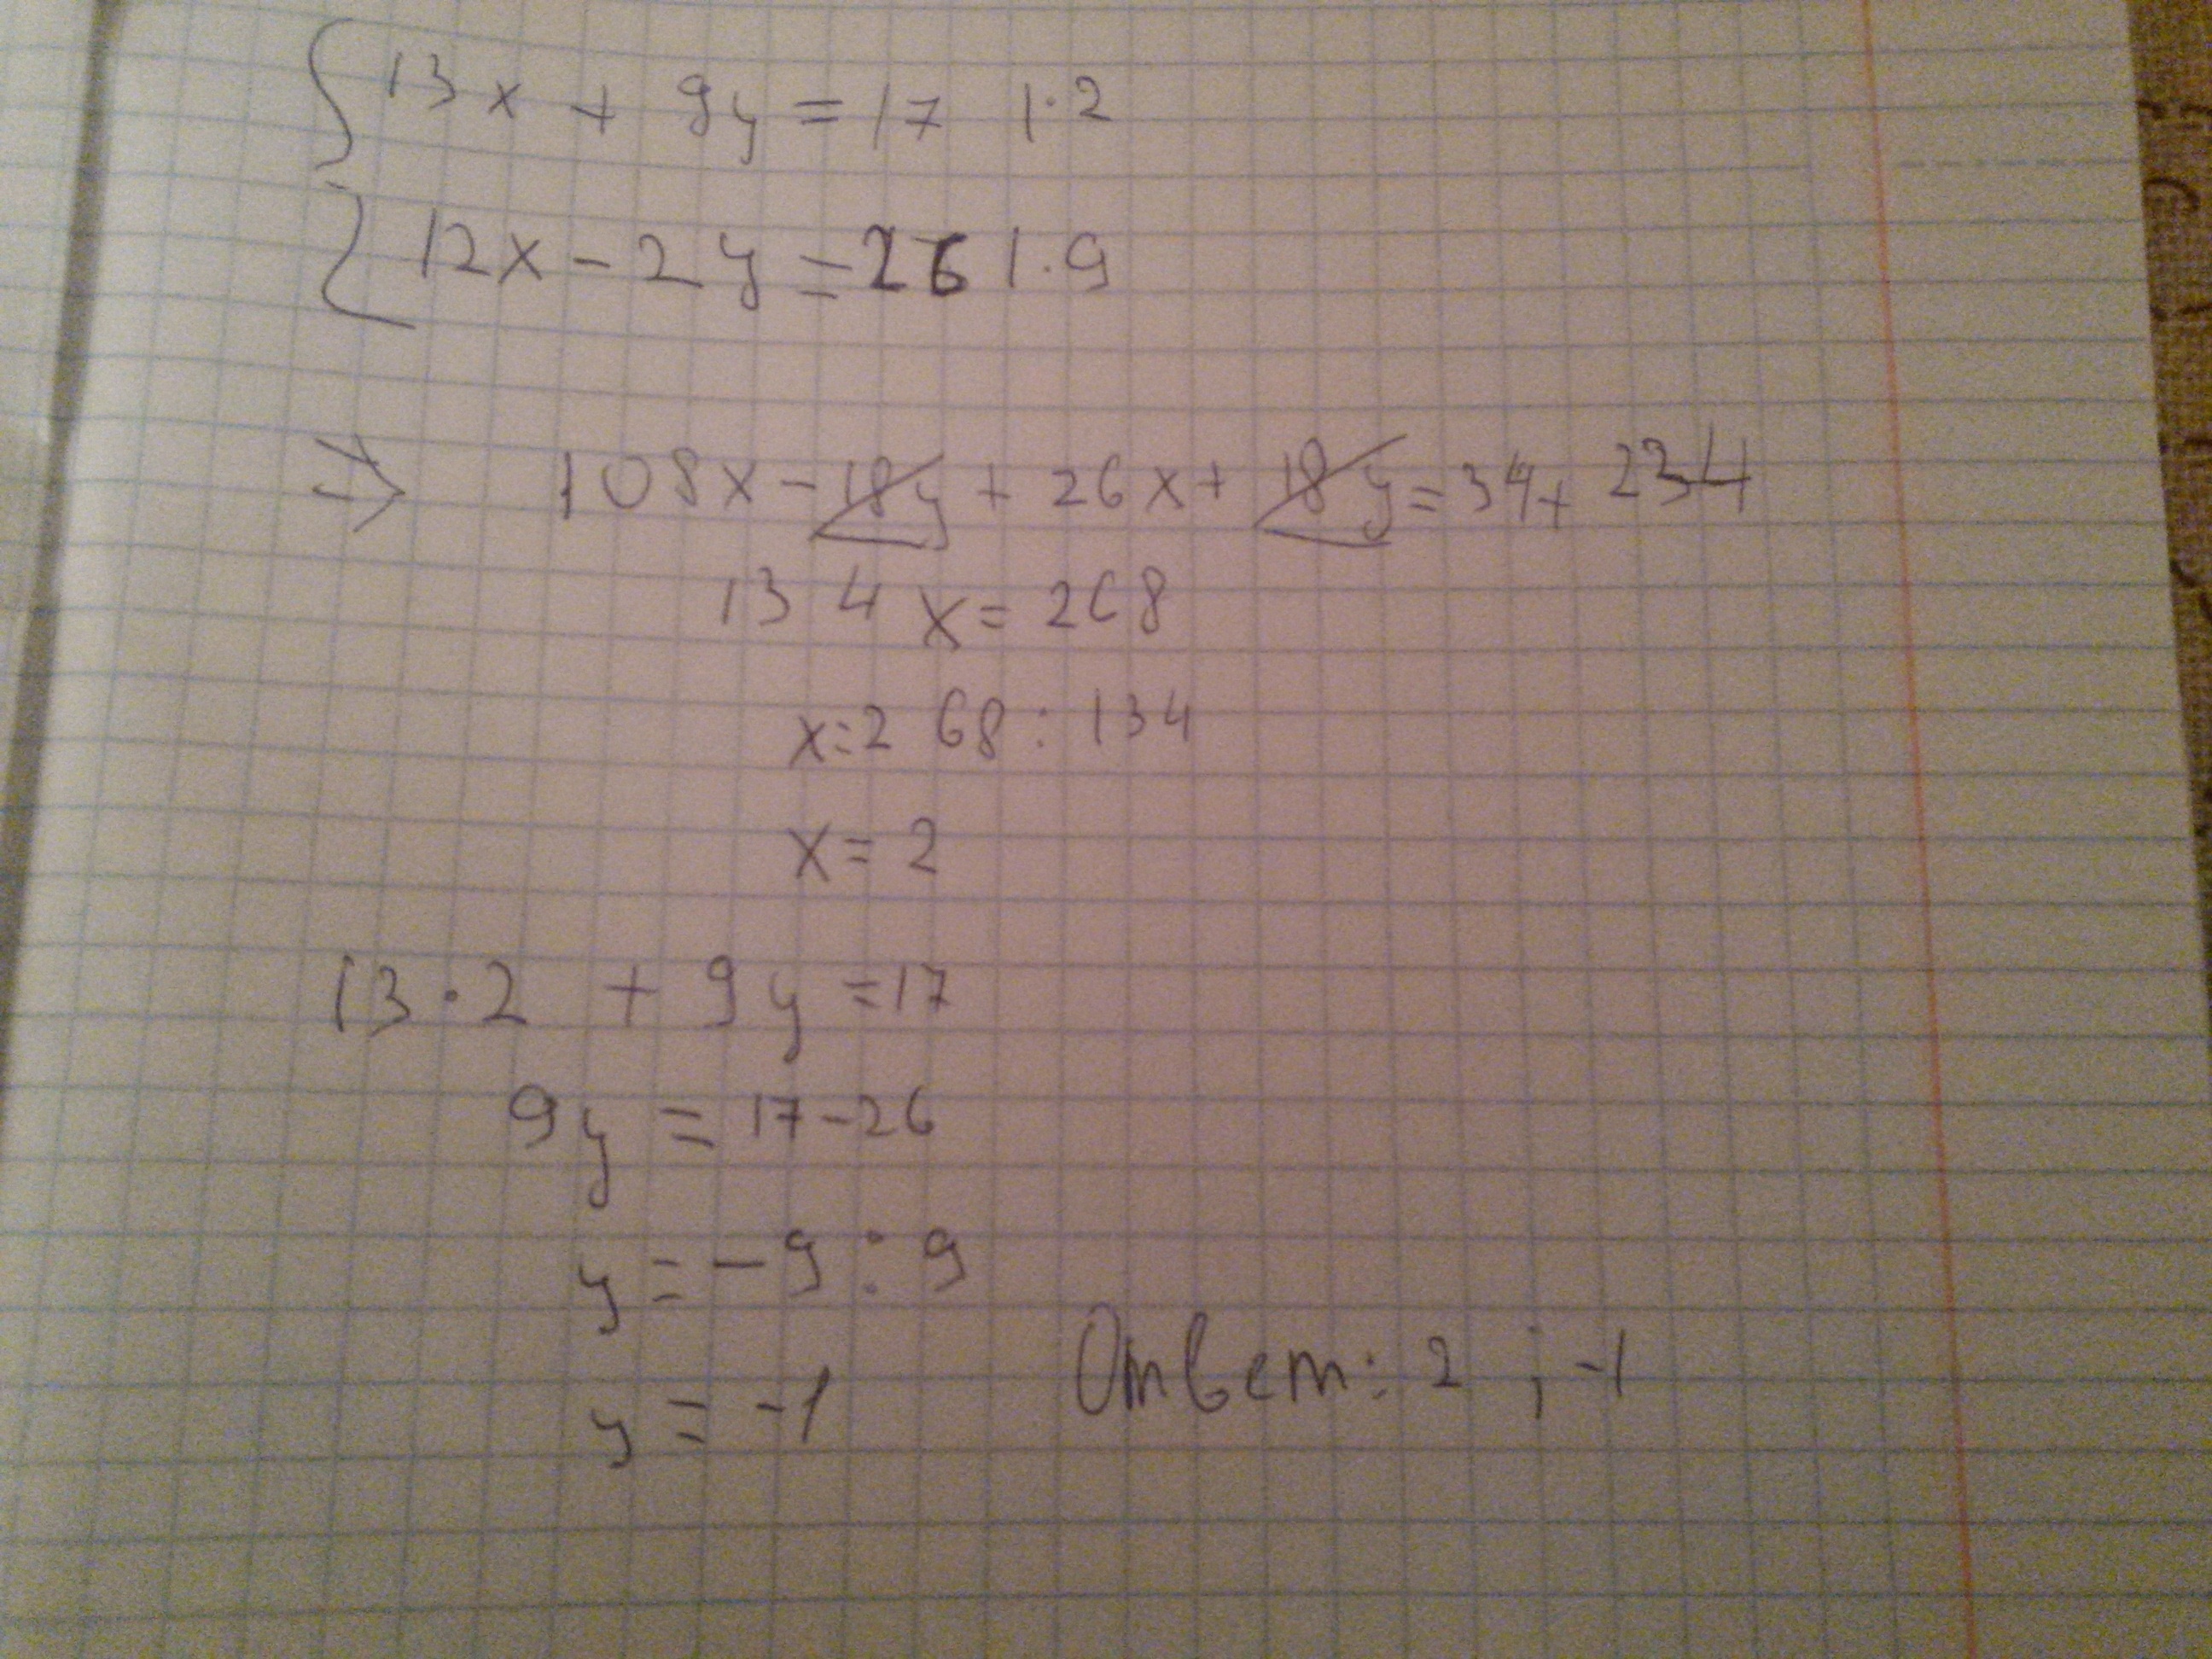 13x + 9y = 17 | · 2
12x - 2y = 26 | · 9
⇒ 108x - 18y + 26x + 18y = 34 + 234
134x = 268
x = 268 : 134
x = 2
13 · 2 + 9y = 17
9y = 17 - 26
y = -9 : 9
y = -1
Ответ: 2 ; -1